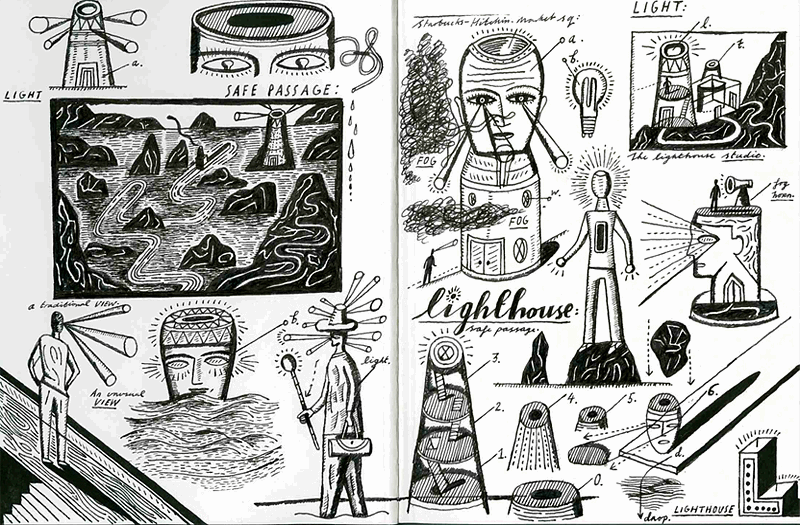 a.
LIGHT
SAFE PASSAGE:
a traditional VIEW.
An unusual
VIEW
b.
light.
Starbucks-Hitchin-Market sq:
a.
b.
FOG
FOG
w.
LIGHT:
l.
t.
The lighthouse studio.
fog
horn.
lighthouse:
safe passage.
3.
2.
1.
4.
5.
0.
6.
d.
drop.
LIGHTHOUSE